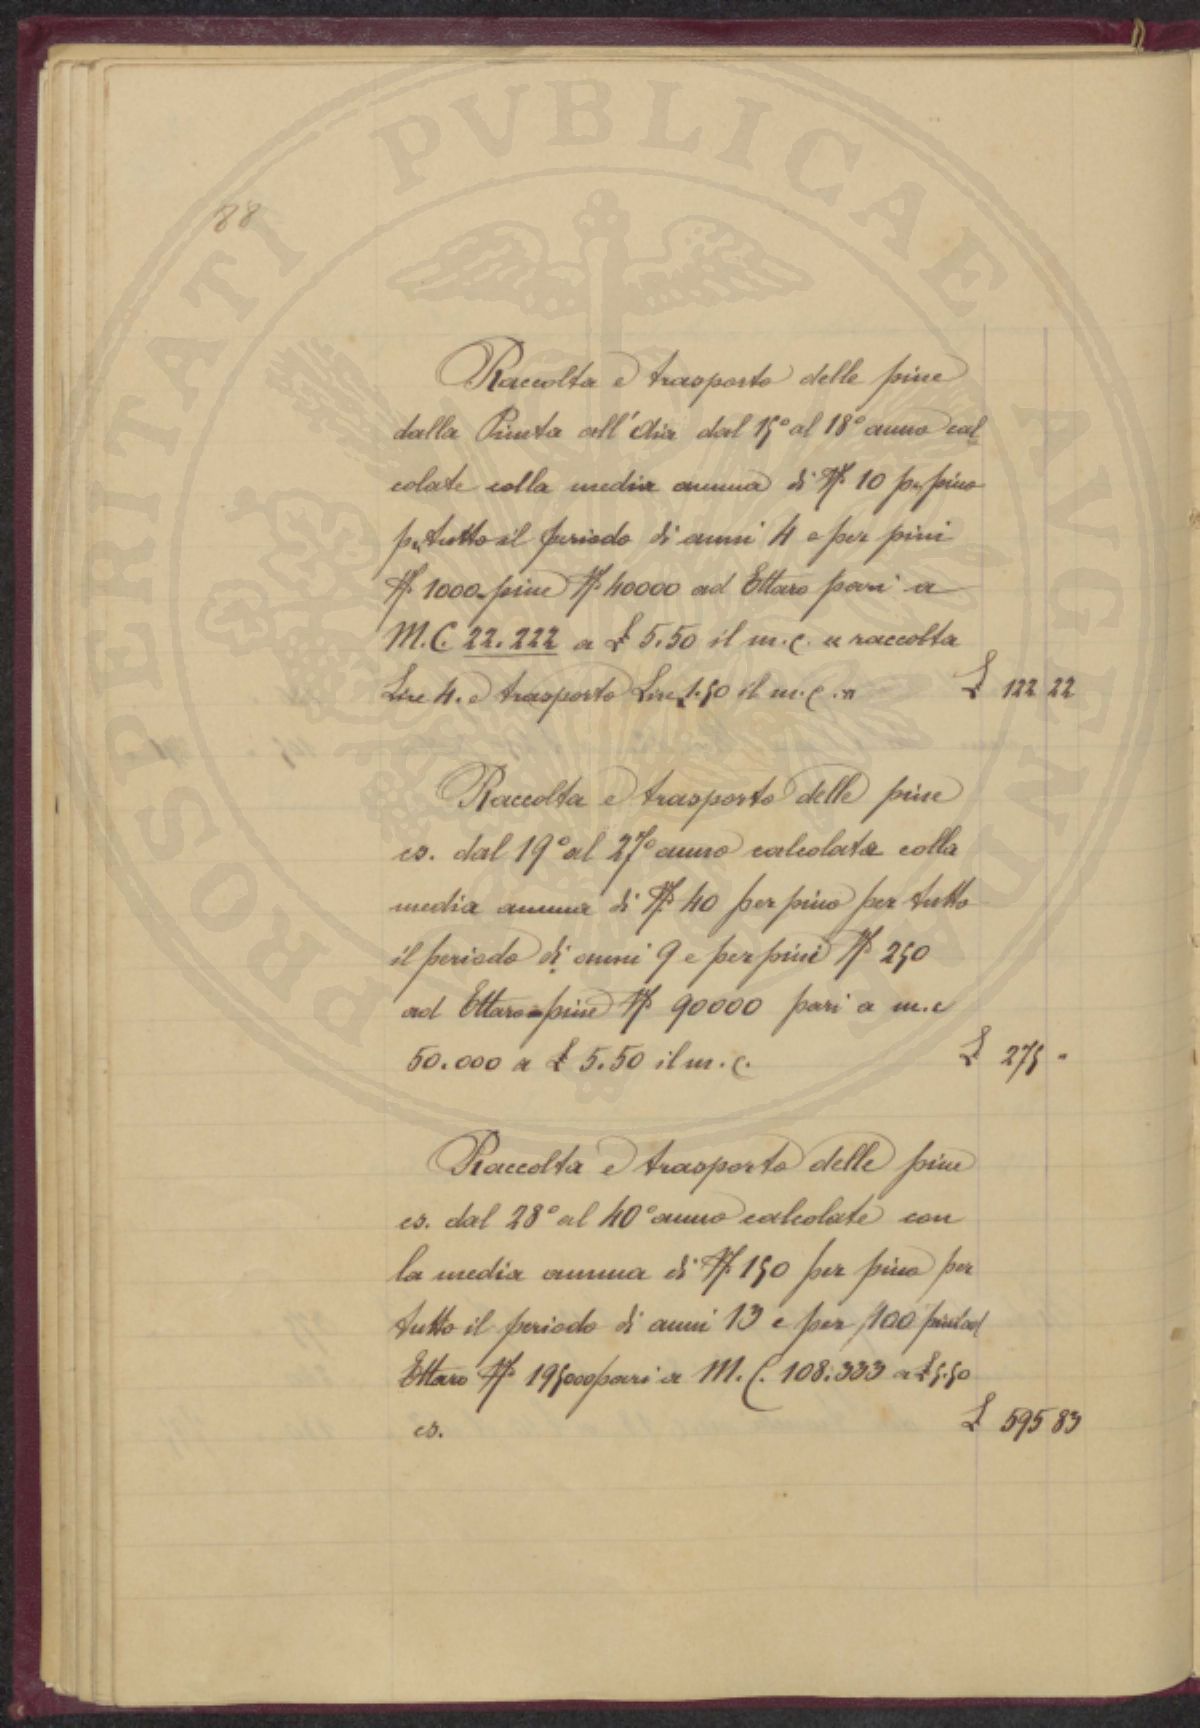 88
Raccolta e trasporto delle pine
dalla Pineta all'Aia dal 15° al 18° anno cal
colate colla media annua di N° 10 per pino
per tutto il periodo di anni 4 e per pini
N° 1000 pine N° 40000 ad Ettaro pari a
M.C. 22.222 a £ 5.50 il m.c. raccolta
Lire 4. e trasporto Lire 1.50 il m.c. £ 122 22
Raccolta e trasporto delle pine
cs. dal 19° al 27° anno calcolata colla
media annua di N° 40 per pino per tutto
il periodo di anni 9 e per pini N° 250
ad Ettaro = pine N° 90000 pari a m.c
50.000 a £ 5.50 il m.c. £ 275 "
Raccolta e trasporto delle pine
cs. dal 28° al 40° anno calcolate con
la media annua di N° 150 per pino per
tutto il periodo di anni 13 e per 100 pini ad
Ettaro N° 195000 pari a M.C. 108.333 a £ 5.50
cs. £ 595 83
PROSPERITATI PVBLICAE AVGENDAE